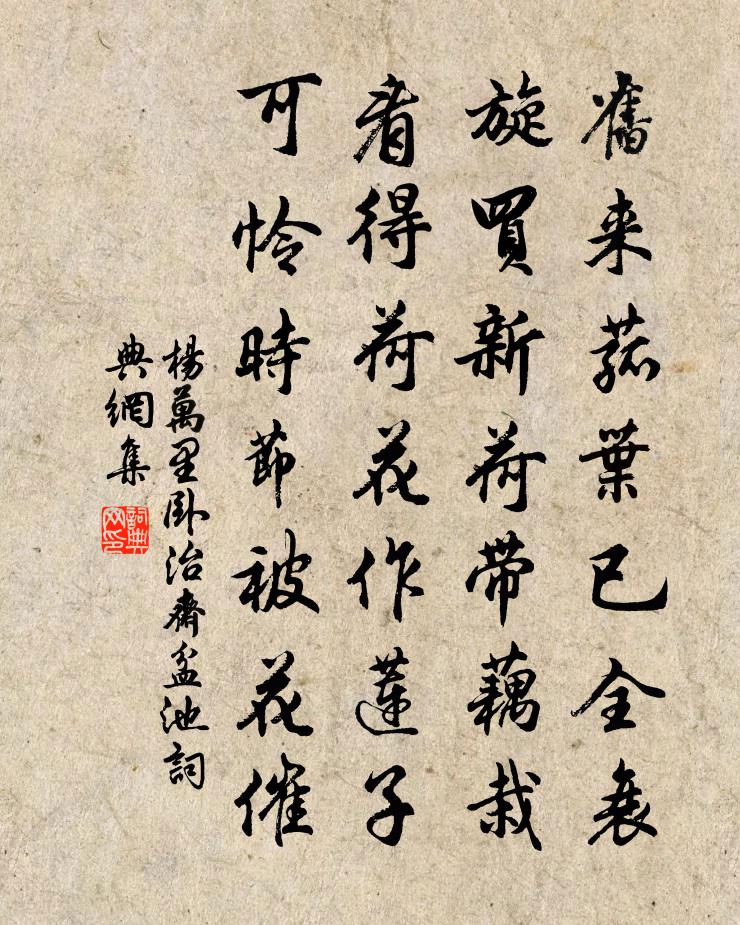 舊来菰葉已全衰
旋買新荷帶藕栽
看得荷花作蓮子
可怜時節被花催
楊萬里卧治齋盆池詞
典網集
詞典網印